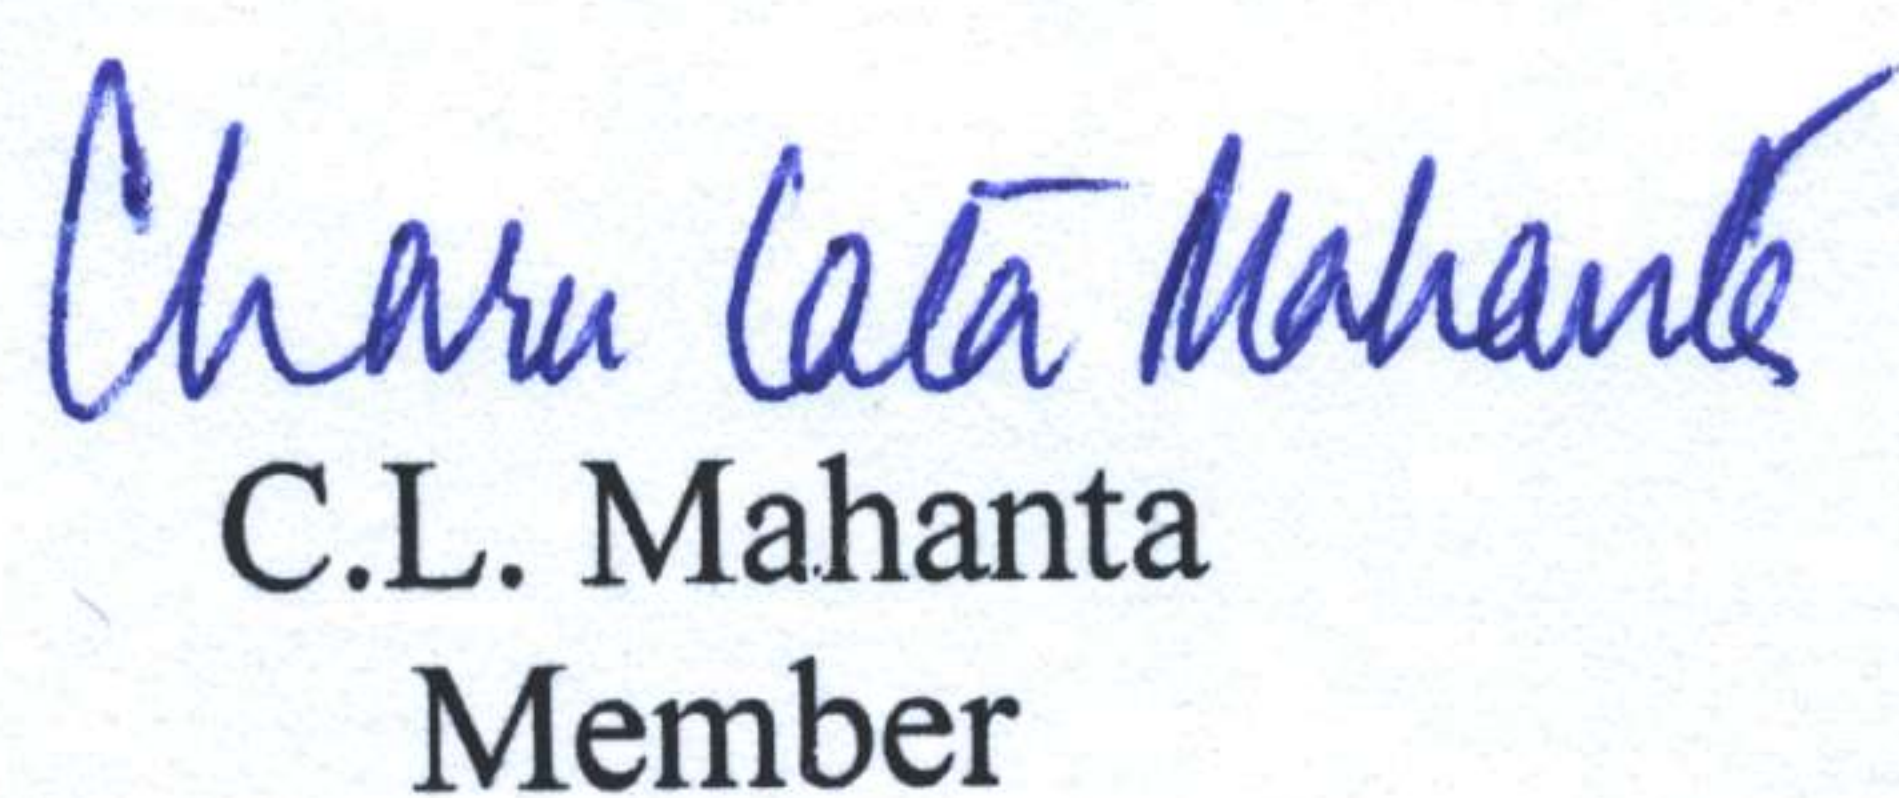 Charu Lata Mahanta
C.L. Mahanta
Member